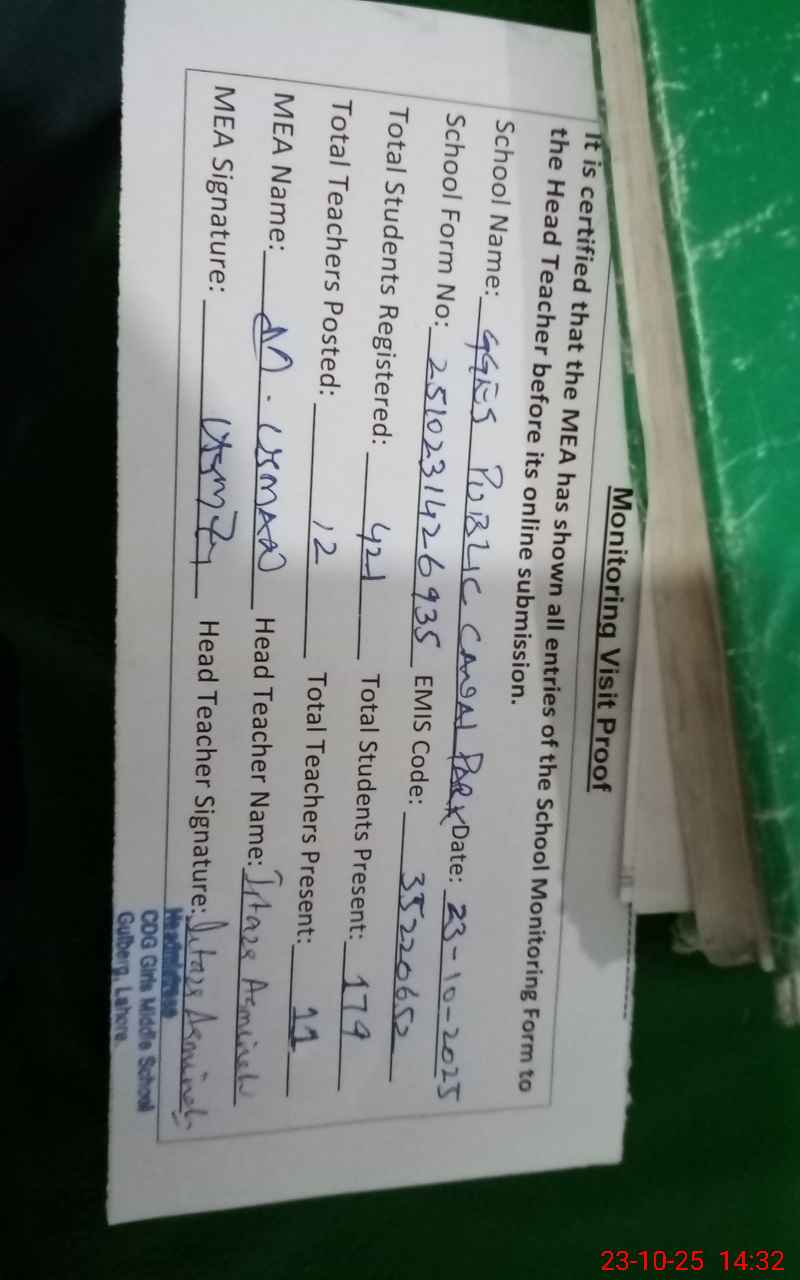 Monitoring Visit Proof
It is certified that the MEA has shown all entries of the School Monitoring Form to
the Head Teacher before its online submission.
School Name: GGES PUBLIC CANAL PARK Date: 23-10-2025
School Form No: 2510231426935 EMIS Code: 35220652
Total Students Registered: 421 Total Students Present: 179
Total Teachers Posted: 12 Total Teachers Present: 11
MEA Name: M. USMAN Head Teacher Name:
MEA Signature: Head Teacher Signature:
Headmistress
CDG Girls Middle School
Gulberg, Lahore.
23-10-25 14:32